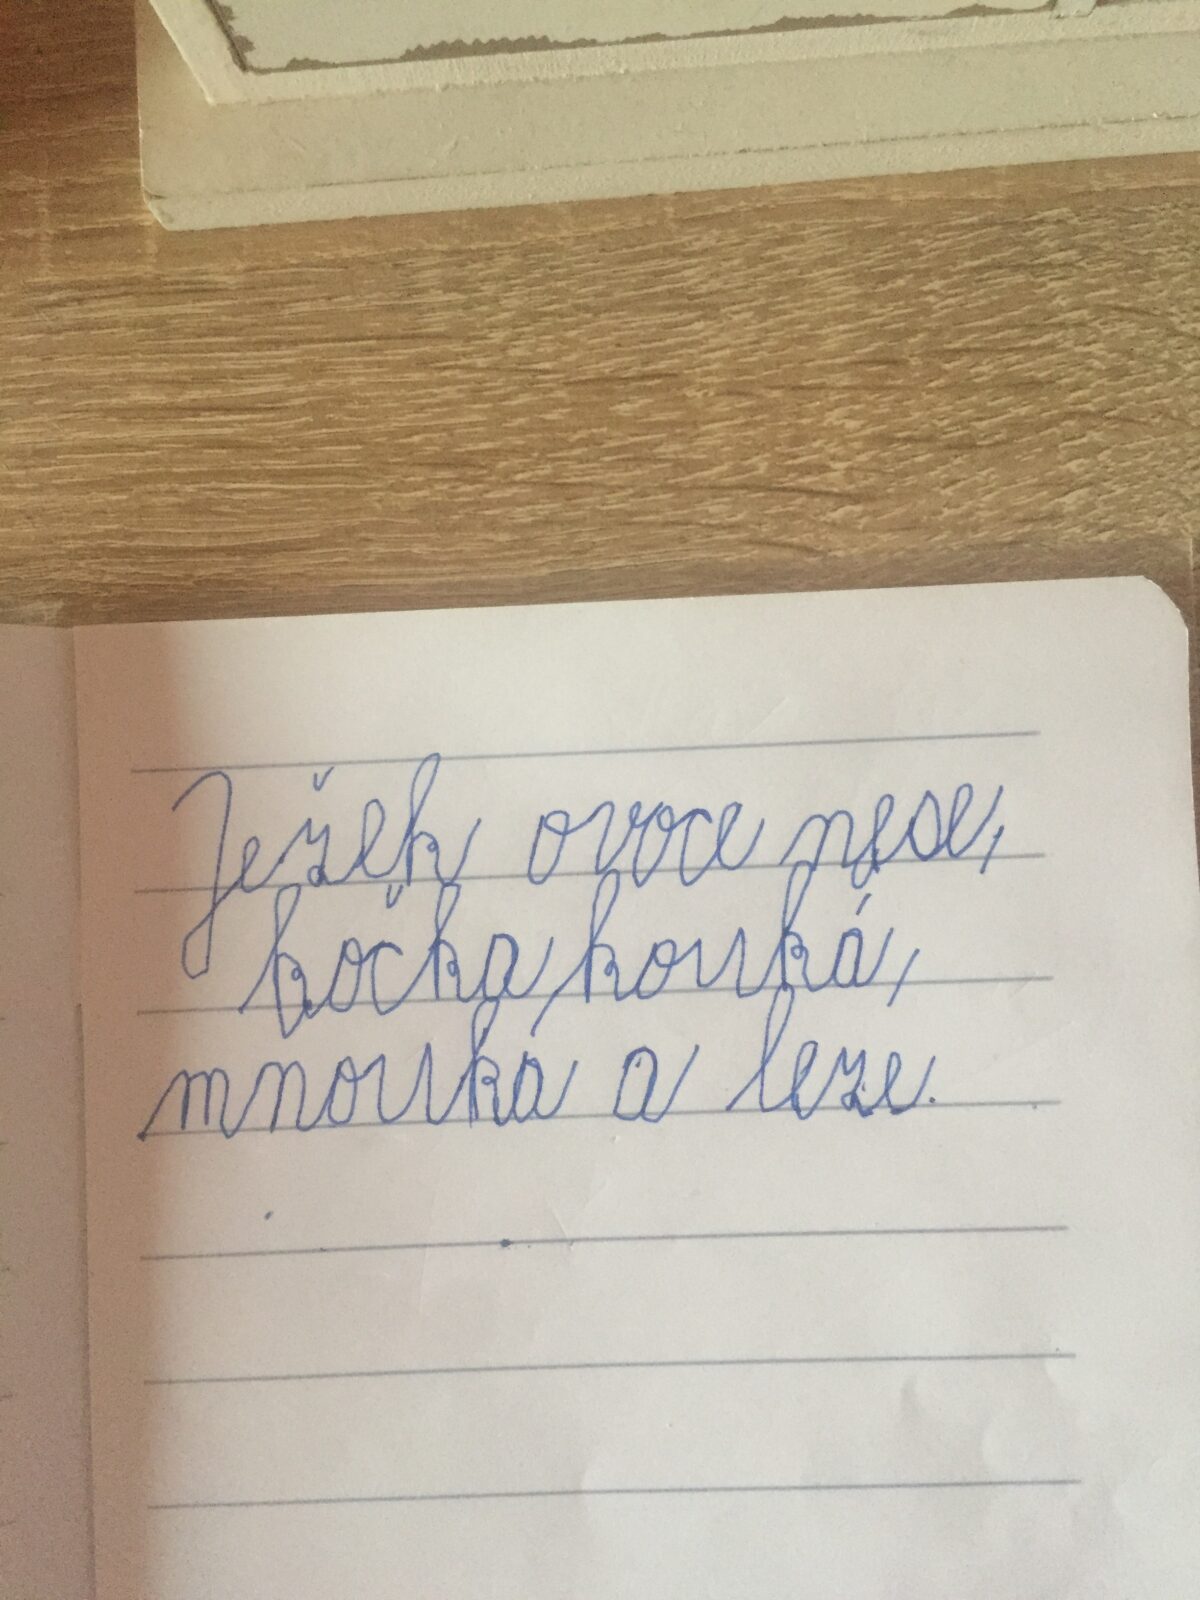 Ježek ovoce nese,
kočka kouká,
mňouká a leze.